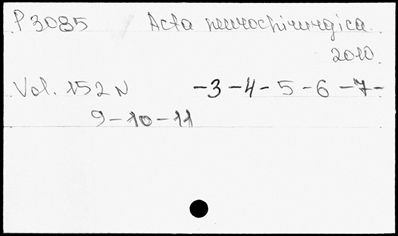 P 3085 Acta neurochirurgica
2010.
Vol. 152 N -3-4-5-6-7-
9-10-11